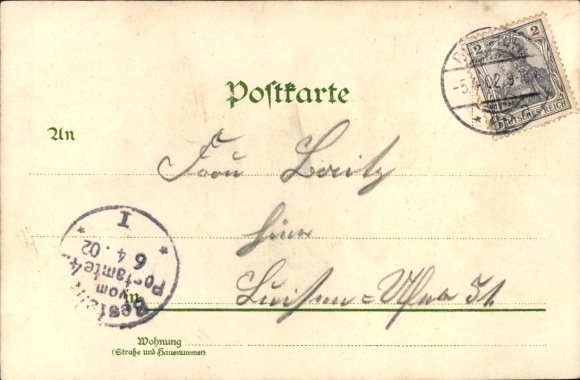 Postkarte
2 2
DEUTSCHES REICH
-5. 02. 9
An
Frau
hier
Luisen-Ufer 51
in
Wohnung
(Straße und Hausnummer)
Bestellt
vom
Postamte 4
6 4. 02
* I *